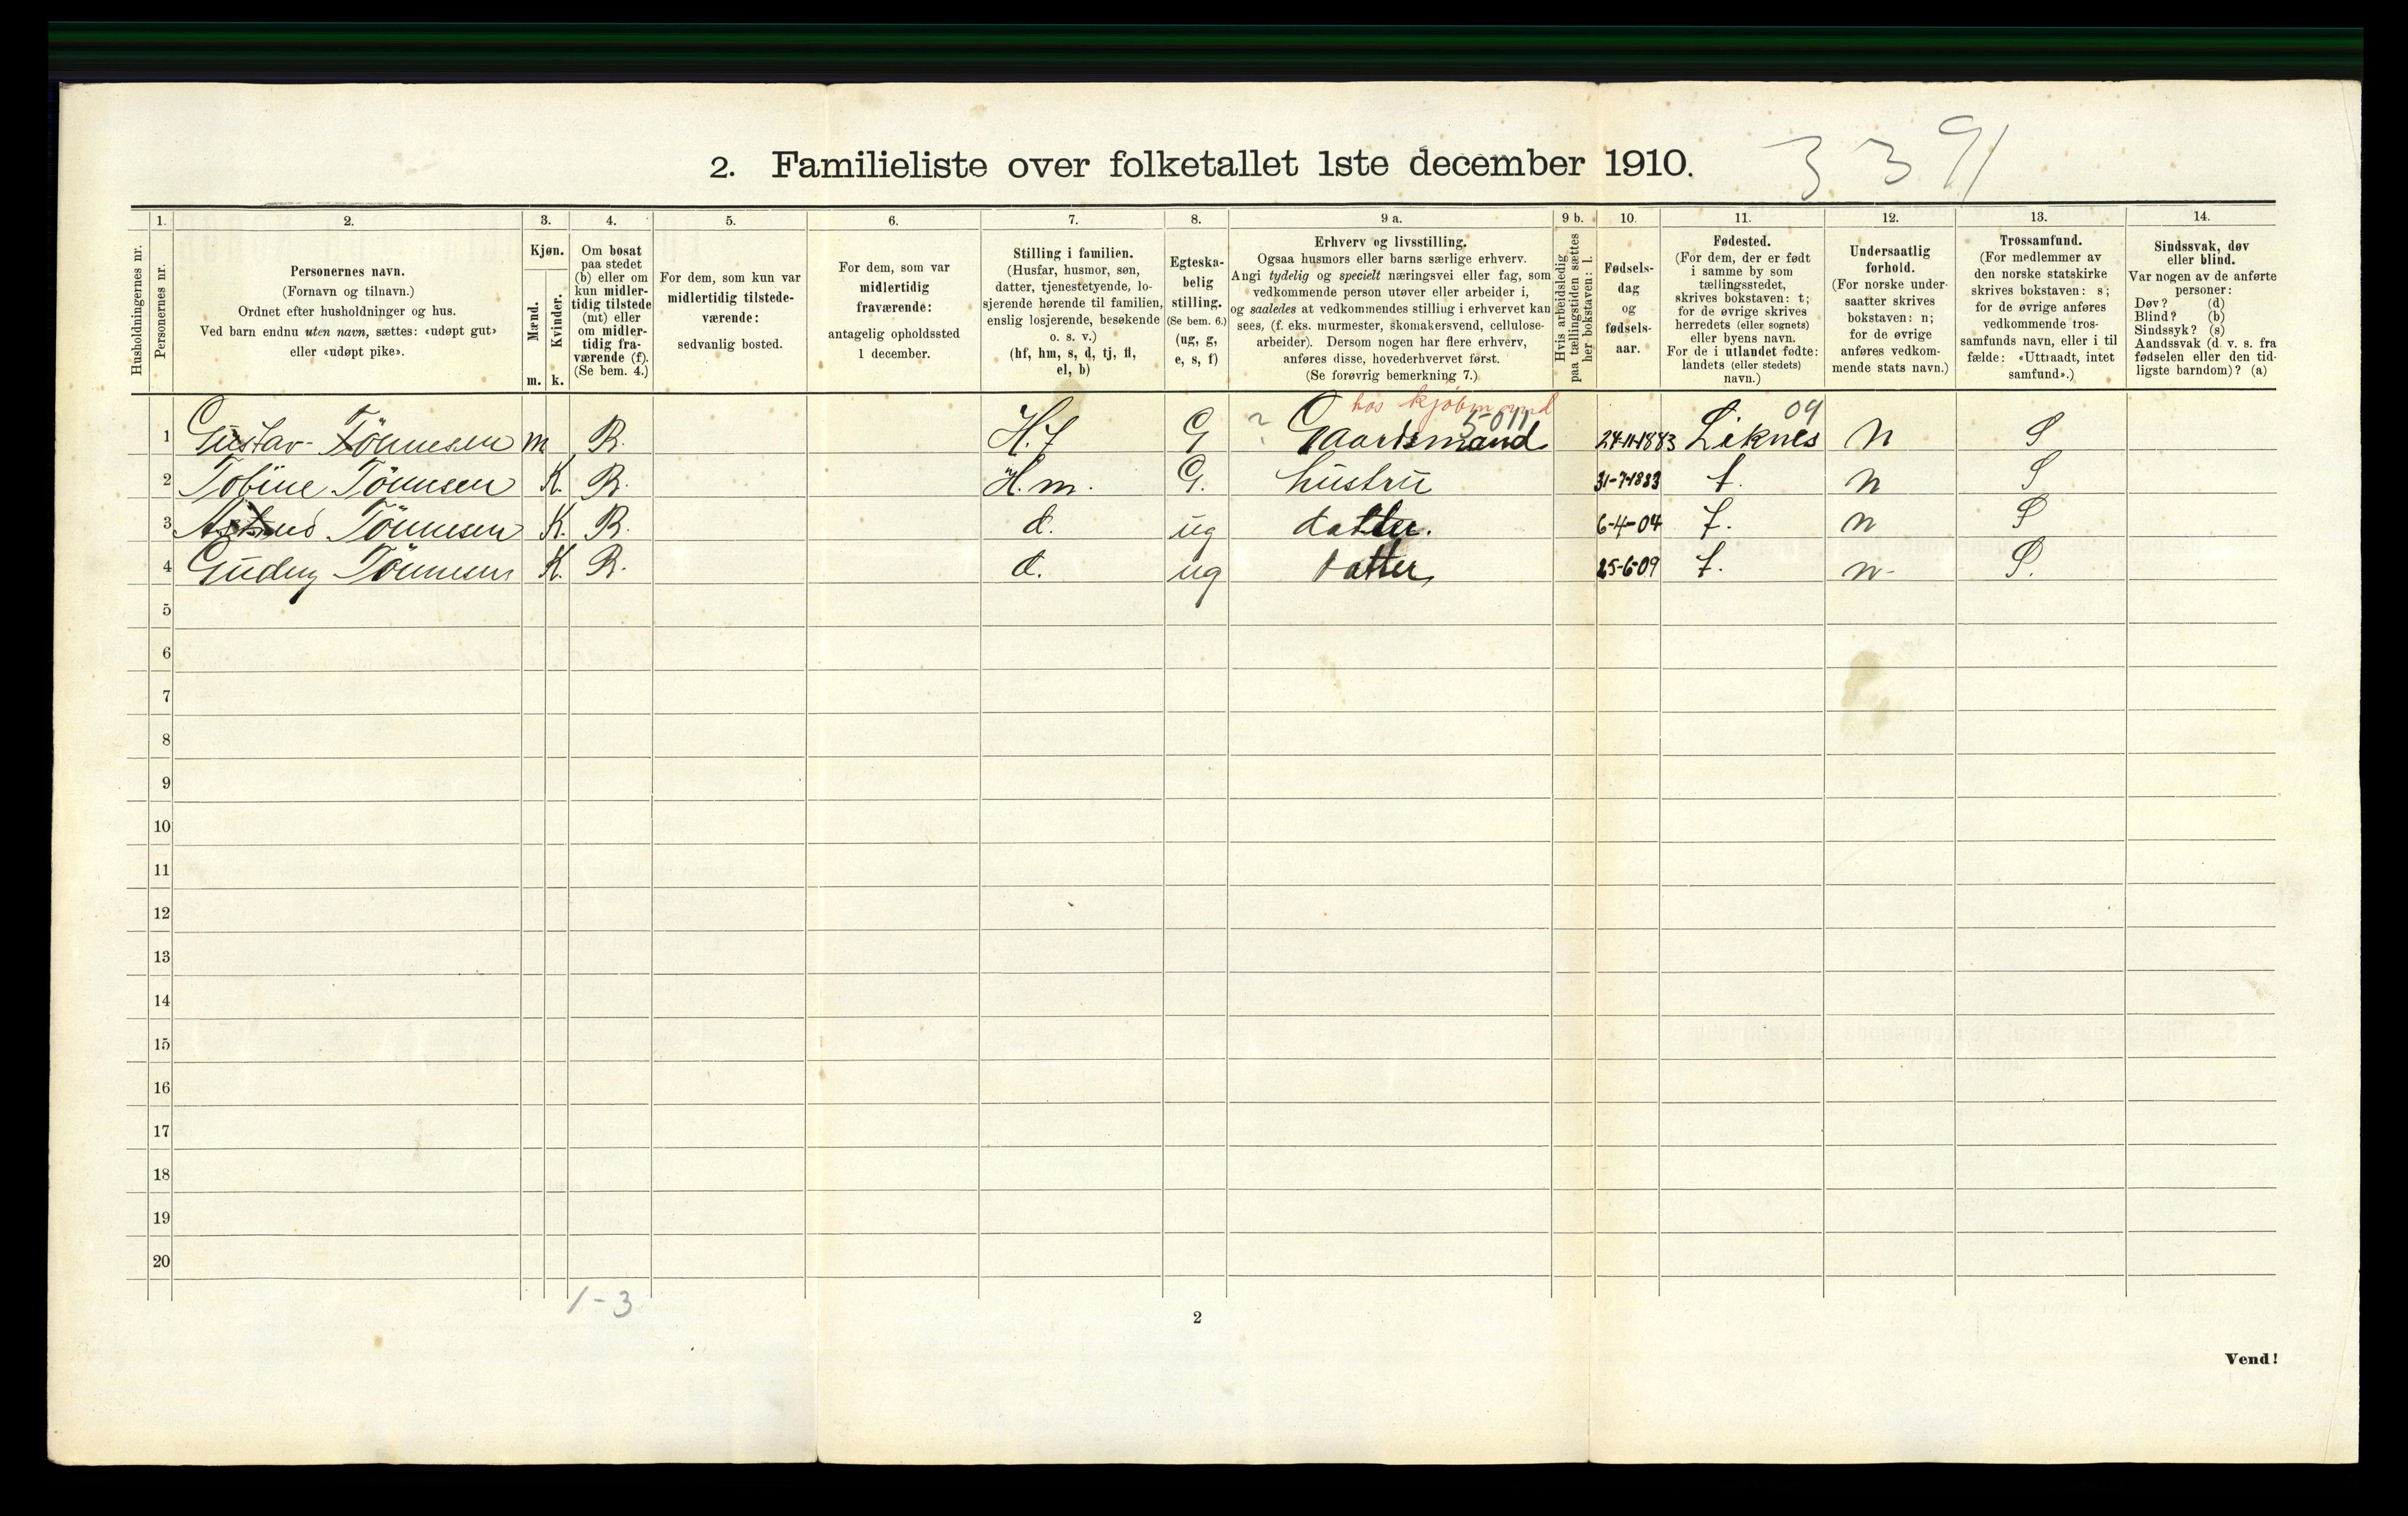 2. Familieliste over folketallet 1ste december 1910.
3 3 91
Husholdningernes nr.
1.
Personernes nr.
2.
Personernes navn.
(Fornavn og tilnavn.)
Ordnet efter husholdninger og hus.
Ved barn endnu uten navn, sættes: «udøpt gut»
eller «udøpt pike».
3.
Kjøn.
Mænd.
Kvinder.
m. k.
4.
Om bosat
paa stedet
(b) eller om
kun midler-
tidig tilstede
(mt) eller
om midler-
tidig fra-
værende (f).
(Se bem. 4.)
5.
For dem, som kun var
midlertidig tilstede-
værende:
sedvanlig bosted.
6.
For dem, som var
midlertidig
fraværende:
antagelig opholdssted
1 december.
7.
Stilling i familien.
(Husfar, husmor, søn,
datter, tjenestetyende, lo-
sjerende hørende til familien,
enslig losjerende, besøkende
o. s. v.)
(hf, hm, s, d, tj, fl,
el, b)
8.
Egteska-
belig
stilling.
(Se bem. 6.)
(ug, g,
e, s, f)
9 a.
Erhverv og livsstilling.
Ogsaa husmors eller barns særlige erhverv.
Angi tydelig og specielt næringsvei eller fag, som
vedkommende person utøver eller arbeider i,
og saaledes at vedkommendes stilling i erhvervet kan
sees, (f. eks. murmester, skomakersvend, cellulose-
arbeider). Dersom nogen har flere erhverv,
anføres disse, hovederhvervet først.
(Se forøvrig bemerkning 7.)
9 b.
Hvis arbeidsledig
paa tællingstiden sættes
her bokstaven: l.
10.
Fødsels-
dag
og
fødsels-
aar.
11.
Fødested.
(For dem, der er født
i samme by som
tællingsstedet,
skrives bokstaven: t;
for de øvrige skrives
herredets (eller sognets)
eller byens navn.
For de i utlandet fødte:
landets (eller stedets)
navn.)
12.
Undersaatlig
forhold.
(For norske under-
saatter skrives
bokstaven: n;
for de øvrige
anføres vedkom-
mende stats navn.)
13.
Trossamfund.
(For medlemmer av
den norske statskirke
skrives bokstaven: s;
for de øvrige anføres
vedkommende tros-
samfunds navn, eller i til
fælde: «Uttraadt, intet
samfund».)
14.
Sindssvak, døv
eller blind.
Var nogen av de anførte
personer:
Døv? (d)
Blind? (b)
Sindssyk? (s)
Aandssvak (d. v. s. fra
fødselen eller den tid-
ligste barndom)? (a)
hos kjøbmand
? 5-011 09
1 Gustav Tönnesen m B. H.f G Gaardsmand 24-11-1883 Liknes n S
2 Tobine Tönnsen K. B. H.m. G. hustru 31-7-1883 t. n S
3 Tönnesen K. B. d. ug datter. 6-4-04 t. n S
4 Gudny Tönnesen K. B. d. ug datter 25-6-09 t. n- S.
5
6
7
8
9
10
11
12
13
14
15
16
17
18
19
20
1-3
2
Vend!